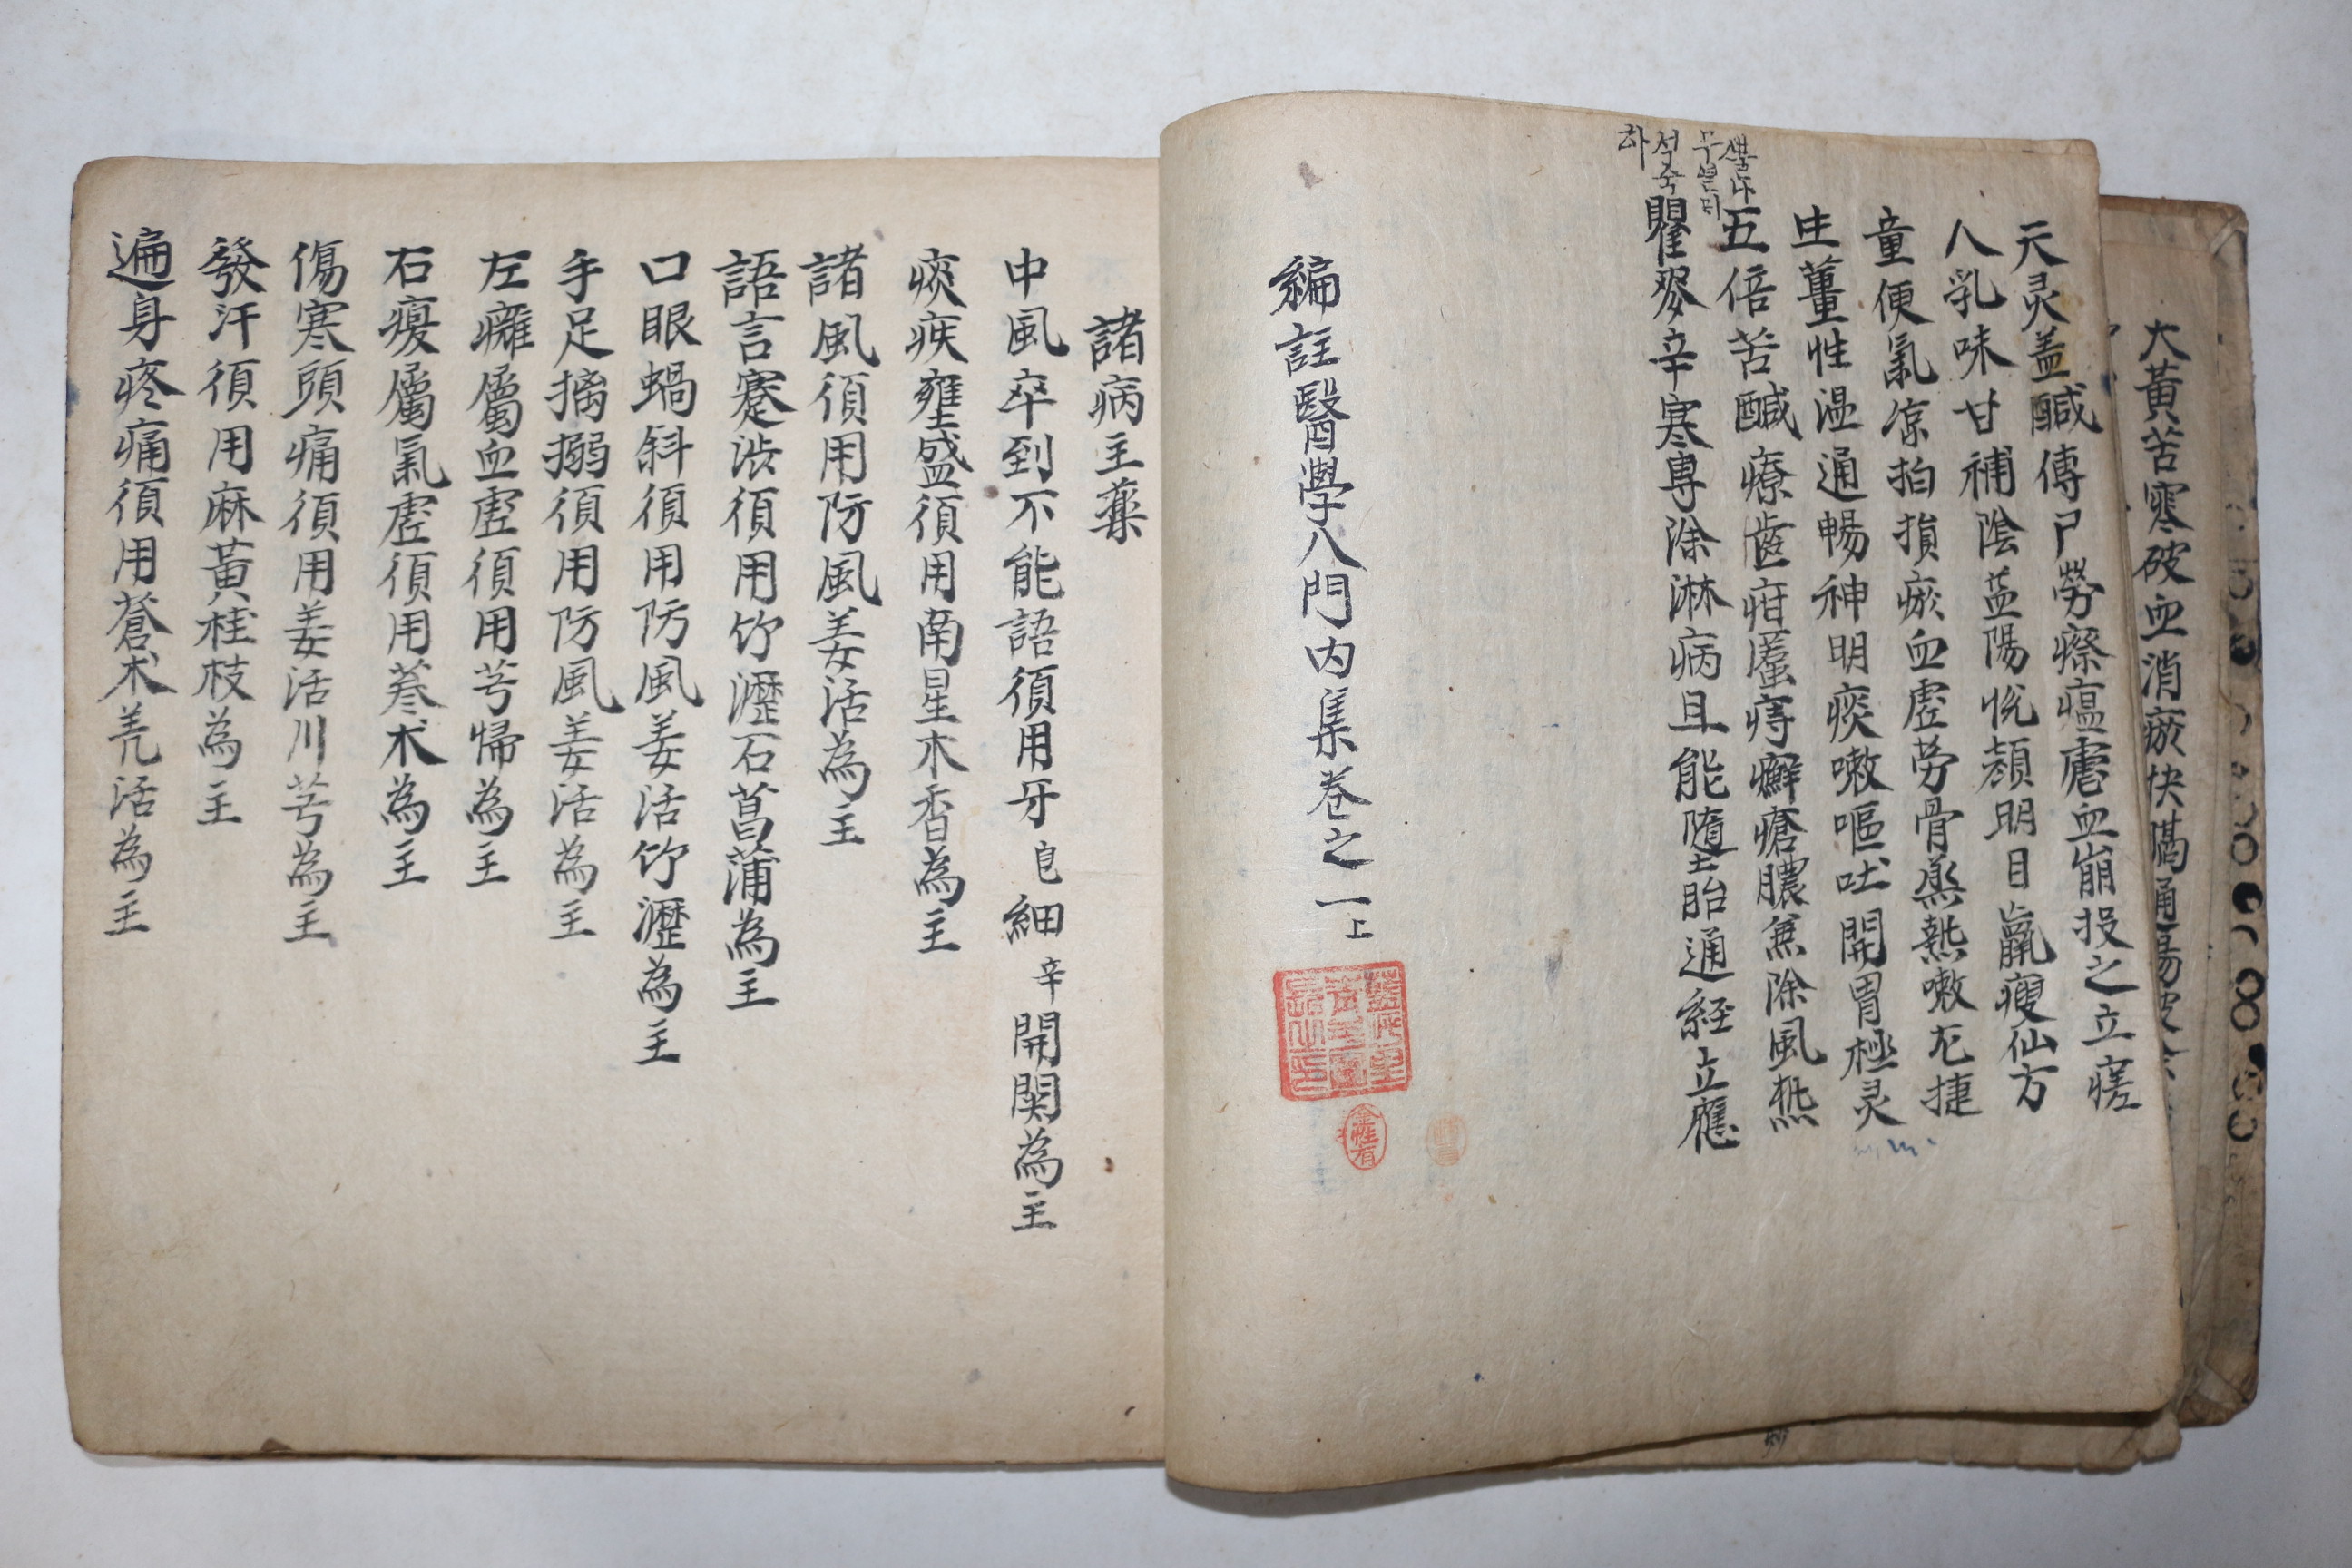 大黃苦寒破血消瘀快膈通腸
天灵盖醎傳尸勞瘵瘟虐血崩投之立瘥
人乳味甘補陰益陽悅顔明目羸瘦仙方
童便氣凉拍損瘀血虛劳骨蒸熱嗽尤捷
生薑性温通暢神明痰嗽嘔吐開胃極灵
五倍苦醎療齒疳䘌痔癬瘡膿兼除風熱
瞿麥辛寒專除淋病且能墮胎通経立應
석쥭
하
編註醫學入門内集卷之一上
諸病主藥
中風卒到不能語須用牙皂細辛開関為主
痰疾壅盛須用南星木香為主
諸風須用防風羗活為主
語言蹇澁須用竹瀝石菖蒲為主
口眼蝸斜須用防風羗活竹瀝為主
手足搐搦須用防風羗活為主
左癱屬血虛須用芎歸為主
右瘓屬氣虛須用蔘术為主
傷寒頭痛須用羗活川芎為主
發汗須用麻黃桂枝為主
遍身疼痛須用蒼术羌活為主